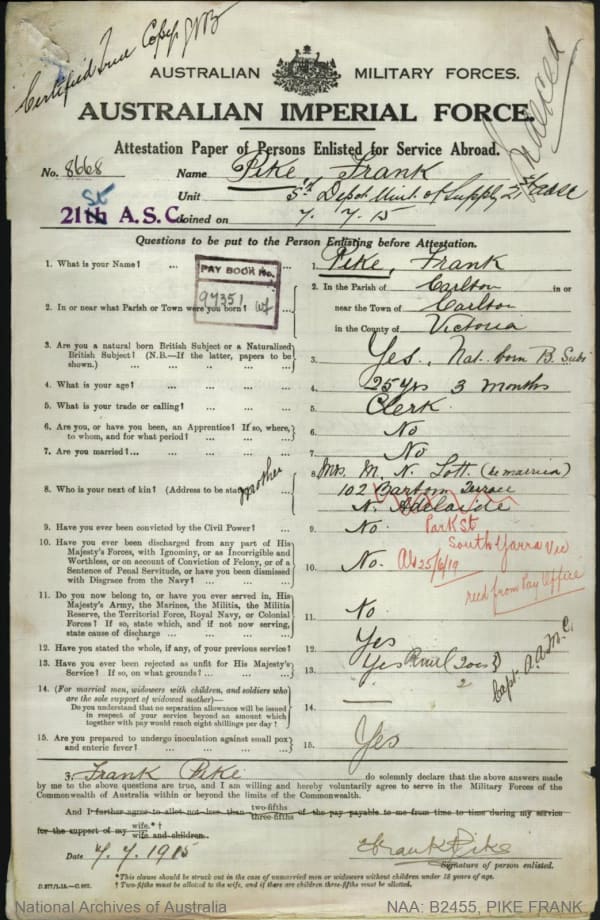 Certified True Copy
AUSTRALIAN MILITARY FORCES.
AUSTRALIAN IMPERIAL FORCE.
Traced
Attestation Paper of Persons Enlisted for Service Abroad.
No. 8668 Name Pike, Frank
Unit 5th Depot Unit of Supply
21st A.S.C. Joined on 7.7.15
Questions to be put to the Person Enlisting before Attestation.
1. What is your Name? ... ... 1. Pike, Frank
PAY BOOK No.
97351
2. In or near what Parish or Town were you born? 2. In the Parish of Carlton in or
near the Town of Carlton
in the County of Victoria
3. Are you a natural born British Subject or a Naturalized
British Subject? (N.B.—If the latter, papers to be
shown.) ... ... ... ... ... 3. Yes, Nat. born B. Sub
4. What is your age? ... ... ... ... 4. 25 yrs 3 months
5. What is your trade or calling? ... ... ... 5. Clerk
6. Are you, or have you been, an Apprentice? If so, where,
to whom, and for what period? ... ... 6. No
7. Are you married?... ... ... ... 7. No
8. Who is your next of kin? (Address to be stated) mother 8. Mrs. M. N. Lott. (remarried)
102 Barton Terrace
N. Adelaide
Park St
South Yarra Vic
25/6/19
recd from Pay Office
9. Have you ever been convicted by the Civil Power? ... 9. No.
10. Have you ever been discharged from any part of His
Majesty's Forces, with Ignominy, or as Incorrigible and
Worthless, or on account of Conviction of Felony, or of a
Sentence of Penal Servitude, or have you been dismissed
with Disgrace from the Navy? ... ... ... 10. No.
11. Do you now belong to, or have you ever served in, His
Majesty's Army, the Marines, the Militia, the Militia
Reserve, the Territorial Force, Royal Navy, or Colonial
Forces? If so, state which, and if not now serving,
state cause of discharge ... ... ... 11. No
12. Have you stated the whole, if any, of your previous service? 12. Yes
13. Have you ever been rejected as unfit for His Majesty's
Service? If so, on what grounds? ... ... 13. Yes
Capt. A.A.M.C.
14. (For married men, widowers with children, and soldiers who
are the sole support of widowed mother)—
Do you understand that no separation allowance will be issued
in respect of your service beyond an amount which
together with pay would reach eight shillings per day? 14. —
15. Are you prepared to undergo inoculation against small pox
and enteric fever? ... ... ... ... 15. Yes
I, Frank Pike do solemnly declare that the above answers made
by me to the above questions are true, and I am willing and hereby voluntarily agree to serve in the Military Forces of the
Commonwealth of Australia within or beyond the limits of the Commonwealth.
And I further agree to allot not less than two-fifths three-fifths of the pay payable to me from time to time during my service
for the support of my wife.*† wife and children.
Date 7.7.1915 Frank Pike
Signature of person enlisted.
*This clause should be struck out in the case of unmarried men or widowers without children under 18 years of age.
† Two-fifths must be allotted to the wife, and if there are children three-fifths must be allotted.
National Archives of Australia NAA: B2455, PIKE FRANK